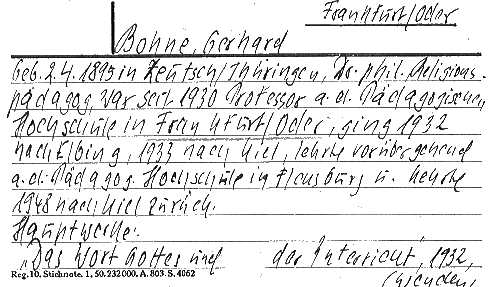 Frankfurt/Oder
Bohne, Gerhard
Geb. 2.4. 1895 in Zeutsch/Thüringen, Dr. phil. Religions-
pädagog, war seit 1930 Professor a.d. Pädagogischen
Hochschule in Frankfurt/Oder, ging 1932
nach Elbing, 1933 nach Kiel, lehrte vorübergehend
a.d. Pädagog. Hochschule in Flensburg u. kehrte
1948 nach Kiel zurück.
Hauptwerke:
"Das Wort Gottes und der Unterricht", 1932,
Reg. 10. Stichnote. 1, 50. 232 000. A. 803. S. 4062